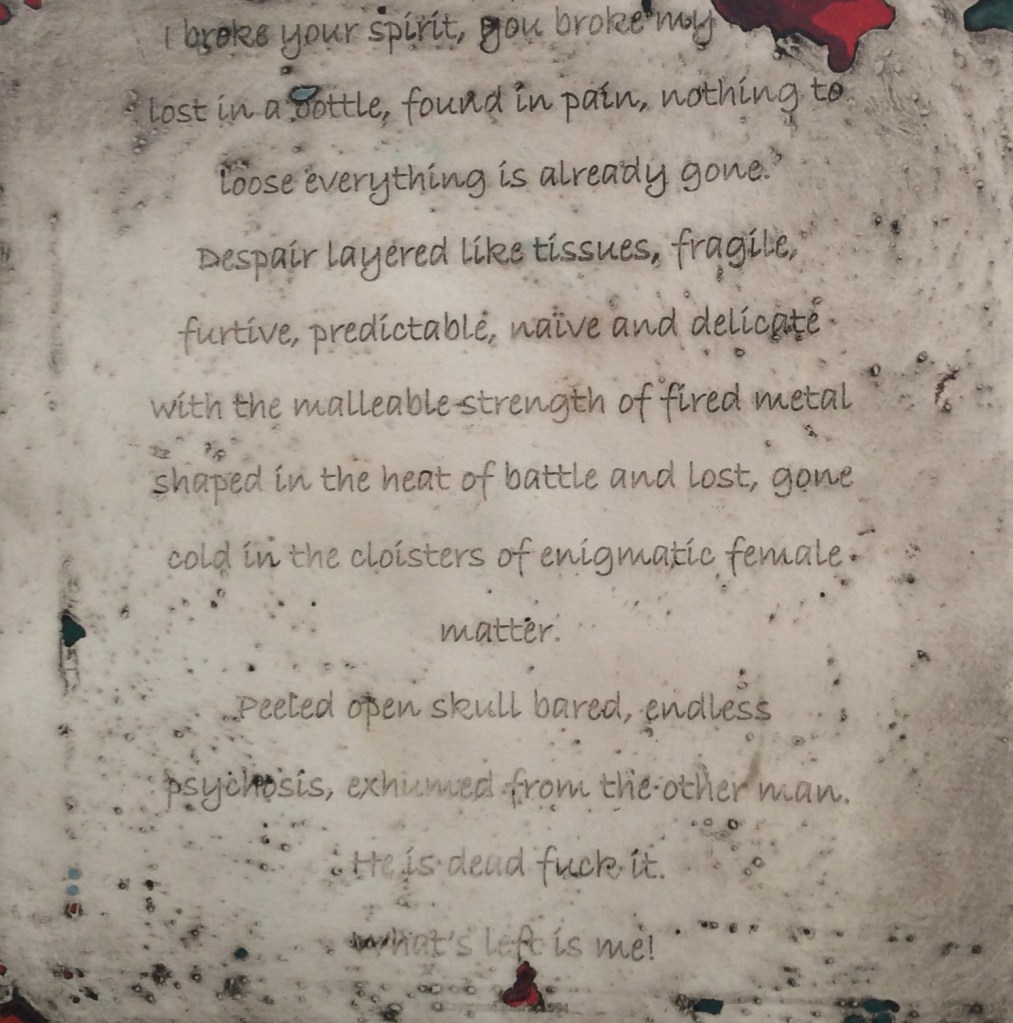 I broke your spirit, you broke my
lost in a bottle, found in pain, nothing to
loose everything is already gone.
Despair layered like tissues, fragile,
furtive, predictable, naïve and delicate
with the malleable strength of fired metal
shaped in the heat of battle and lost, gone
cold in the cloisters of enigmatic female
matter.
Peeled open skull bared, endless
psychosis, exhumed from the other man.
He is dead fuck it.
What's left is me!